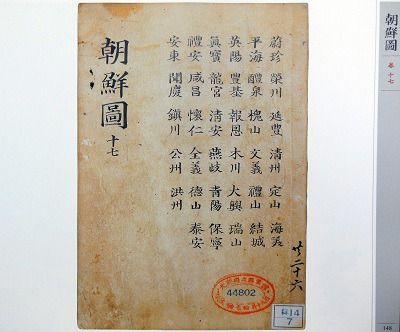 朝鮮圖
卷 十七
蔚珍 榮川 延豊 清州 定山 海美
平海 醴泉 槐山 文義 禮山 結城
英陽 豊基 報恩 木川 大興 瑞山
眞寶 龍宮 清安 燕岐 青陽 保寧
禮安 咸昌 懷仁 全義 德山 泰安
安東 聞慶 鎮川 公州 洪州
朝鮮圖 十七
共二十六
44802
14
7
148